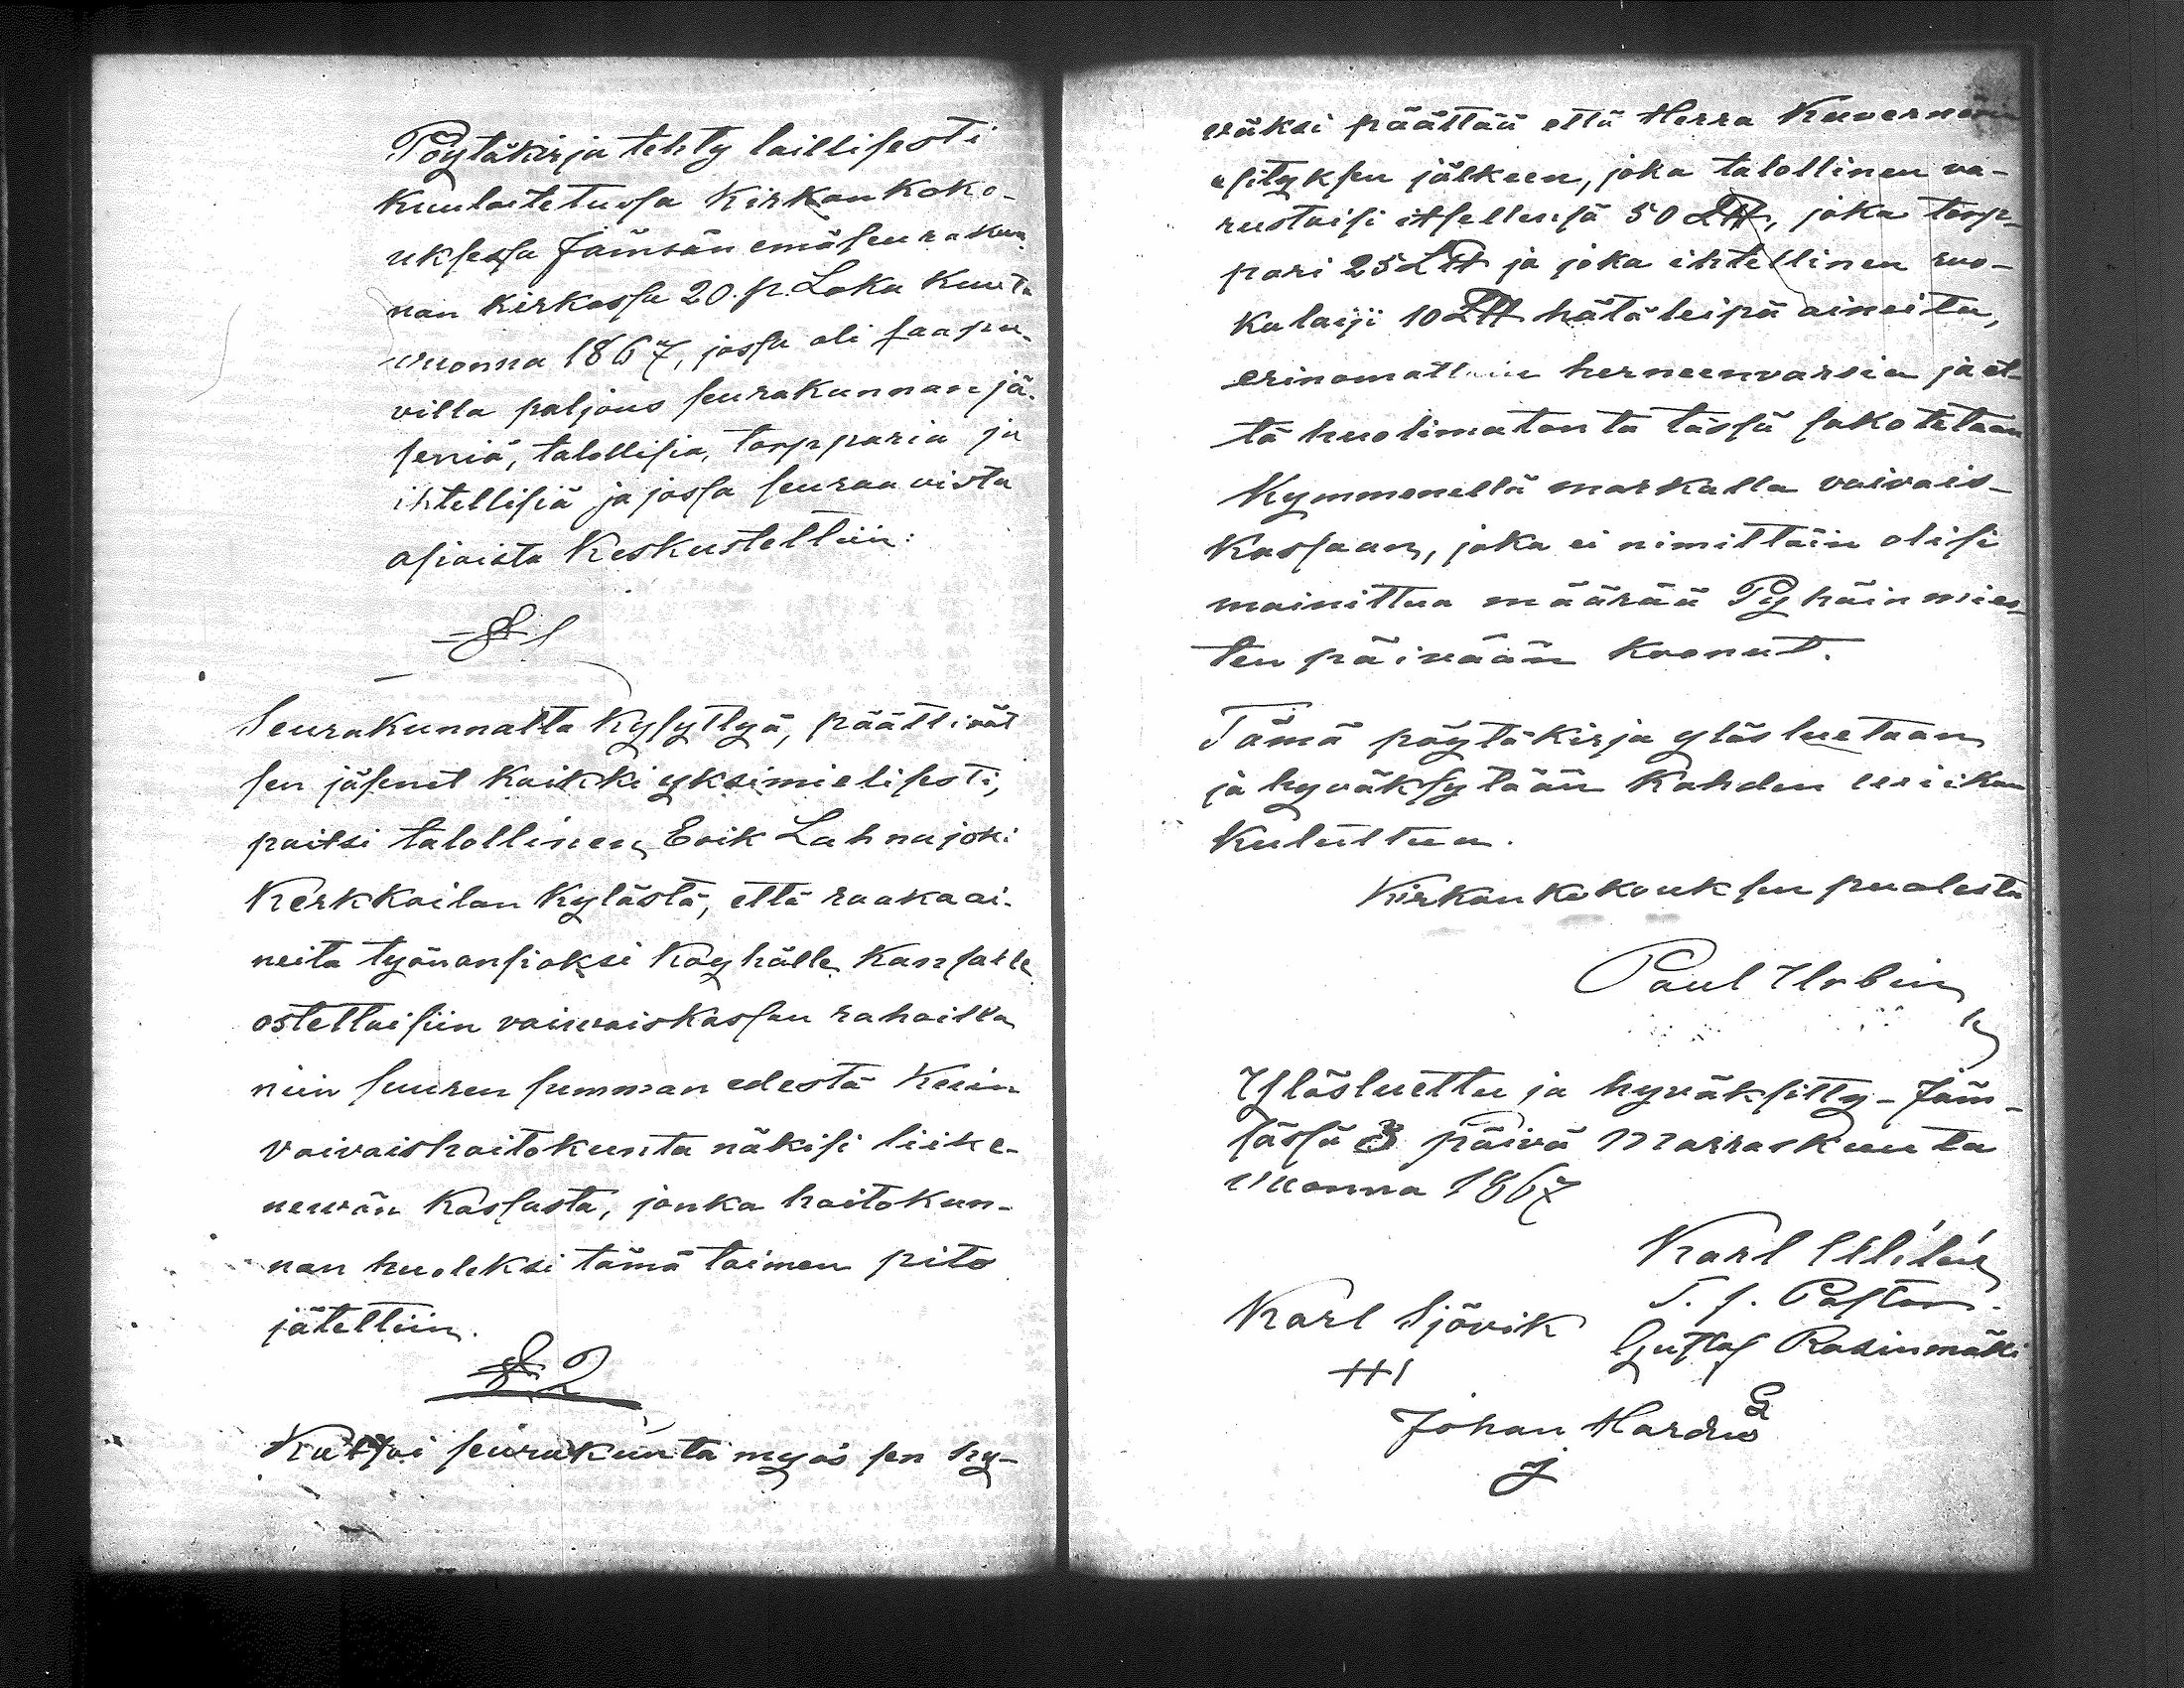 Pöytäkirja tehty laillisesti
kuulutetussa Kirkonkoko-
uksessa Jämsän emäseurakun-
nan kirkossa 20. p. Loka kuuta
vuonna 1867, jossa oli saapu-
villa paljous seurakunnan jä-
seniä, talollisia, torpparia ja
ihtellisiä ja jossa seuraavista
asioista keskusteltiin:
§ 1
Seurakunnalta kysyttyä, päättivät
sen jäsenet kaikki yksimielisesti,
paitsi talollinen Erik Lahnajoki
Kerkkoilan kylästä, että raaka ai-
neita työnansioksi köyhälle kansalle
ostettaisiin vaivaiskassan rahoilla
niin suuren summan edestä kuin
vaivaishoitokunta näkisi liike-
nevän kassasta, jonka hoitokun-
nan huoleksi tämä toimen pito
jätettiin.
§ 2
Katsoi seurakunta myös sen hy-
väksi päättää että Herra Kuvernöri
esityksen jälkeen, joka talollinen va-
rustaisi itsellensä 50 L℔, joka torp-
pari 25 L℔ ja joka ihtellinen ruo-
kalaiji 10 L℔ hätäleipä aineita,
erinomattain herneenvarsia ja et-
tä huolimatonta tässä sakotetaan
kymmenellä markalla vaivais-
kassaan, joka ei nimittäin olisi
mainittua määrää Pyhäinmies-
ten päivään koonut.
Tämä pöytäkirja ylösluetaan
ja hyväksytään kahden viikon
kuluttua.
Kirkonkokouksen puolesta
Paul
Ylösluettu ja hyväksitty Jäm-
sässä 3 päivä Marraskuuta
vuonna 1867
Karl
T. f. Pastor.
Karl Sjövik
Gustaf Rasinmäki
Johan